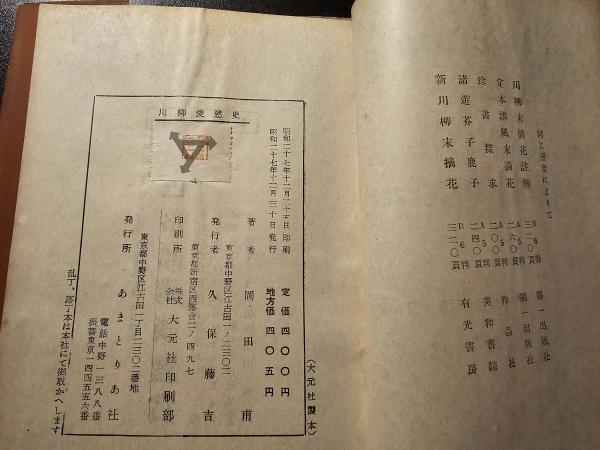 同上著者によりて
川柳末摘花註解 B6判 三二〇頁 第一出版社
定本誹風末摘花 A5判 二六〇頁 第一出版社
珍書探求 A5判 二〇〇頁 作品社
諸遊芥子鹿子 A5判 二四〇頁 美和書院
新川柳末摘花 B6判 三二〇頁 有光書房
川柳愛慾史
昭和二十七年十二月二十五日印刷
昭和二十七年十二月三十日発行
定価四〇〇円
地方価四〇五円
著者 岡田甫
東京都中野区江古田一ノ二三〇二
発行者 久保藤吉
東京都新宿区西落合二ノ四九七
印刷所 株式会社 大元社印刷部
東京都中野区江古田一丁目二三〇二番地
発行所 あまとりあ社
電話中野一三八八番
振替東京一四四五五六番
(大元社製本)
乱丁、落丁本は本社にて御取かへします